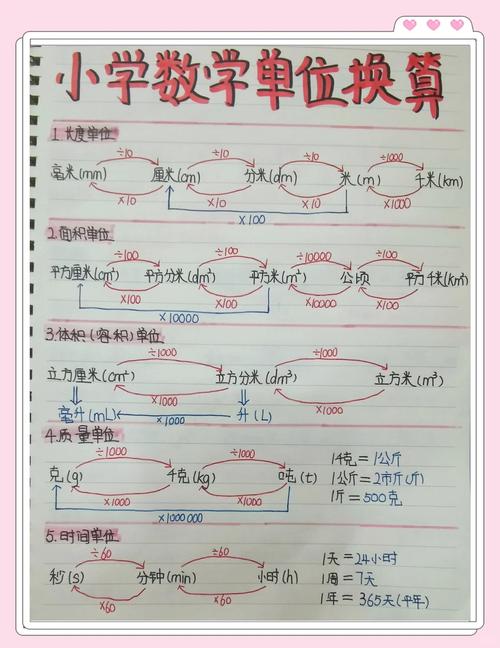 小学数学单位换算
1.长度单位
÷10 ÷10 ÷10 ÷1000
毫米(mm) 厘米(cm) 分米(dm) 米(m) 千米(km)
×10 ×10 ×10 ×1000
×100
2.面积单位
÷100 ÷100 ÷10000 ÷100
平方厘米(cm²) 平方分米(dm²) 平方米(m²) 公顷 平方千米(km²)
×100 ×100 ×10000 ×100
×10000
3.体积(容积)单位
÷1000 ÷1000
立方厘米(cm³) 立方分米(dm³) 立方米(m³)
×1000 ×1000
毫升(mL) ×1000 升(L)
4.质量单位
÷1000 ÷1000
克(g) 千克(kg) 吨(t)
×1000 ×1000
×1000000
1千克=1公斤
1公斤=2市斤(斤)
1斤=500克
5.时间单位
÷60 ÷60
秒(s) 分钟(min) 小时(h)
×60 ×60
1天=24小时
1周=7天
1年=365天(平年)